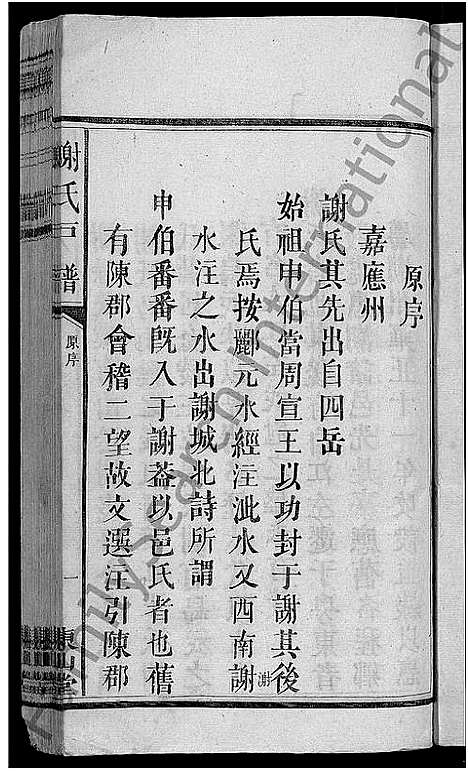 原序
嘉應州
謝氏其先出自四岳
始祖申伯當周宣王以功封于謝其後
氏焉按酈元水經注泚水又西南謝
水注之水出謝城北詩所謂
申伯番番旣入于謝葢以邑氏者也舊
有陳郡會稽二望故文選注引陳郡
謝氏 譜
原序
一
東山堂
FamilySearch International